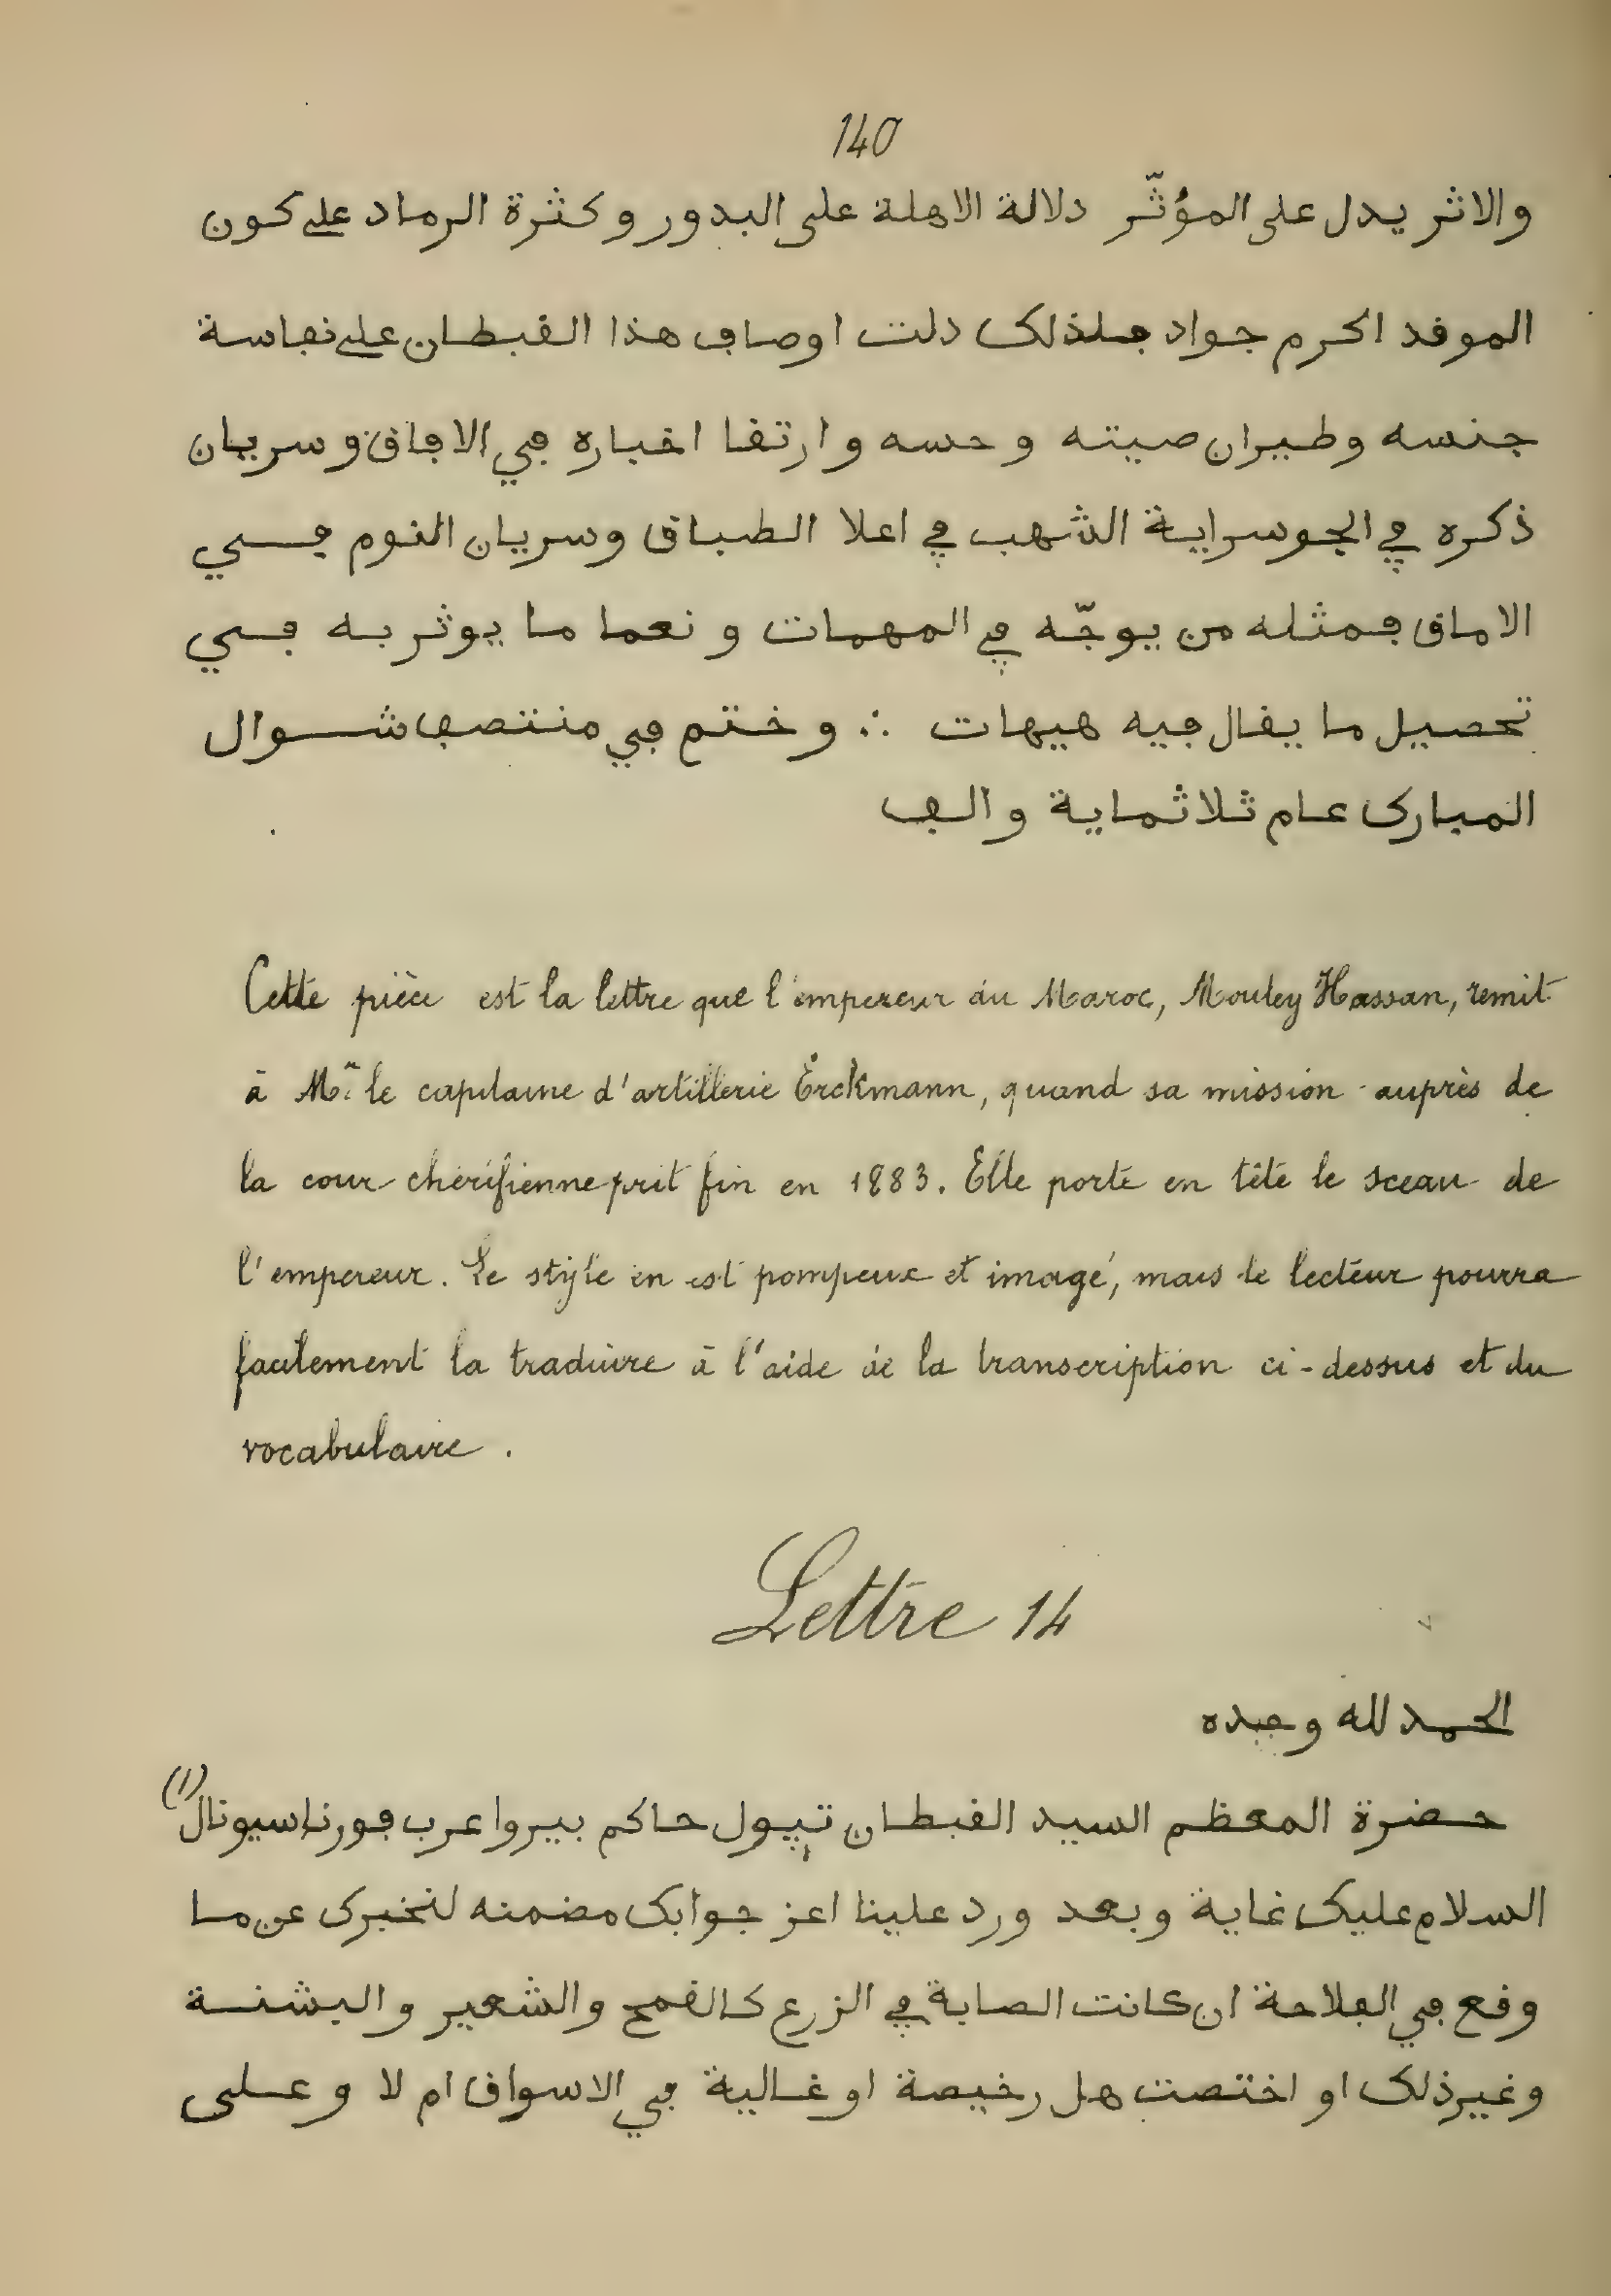 140
والاثر يدل على المؤثّر دلالة الاهلة على البدور وكثرة الرماد على كون
الموفد اكرم جواد فلذلك دلت اوصاف هذا القبطان على نفاسة
جنسه وطيران صيته وحسه وارتقا اخباره في الافاق وسريان
ذكره في الجو سراية الشهب في اعلا الطباق وسريان النوم في
الاماق فمثله من يوجّه في المهمات ونعما ما يوثر به في
تحصيل ما يقال فيه هيهات ∴ وختم في منتصف شوال
المبارك عام ثلاثماية والف
Cette pièce est la lettre que l'empereur du Maroc, Mouley Hassan, remit
à Mr. le capitaine d'artillerie Erckmann, quand sa mission auprès de
la cour chérifienne prit fin en 1883. Elle porte en tête le sceau de
l'empereur. Le style en est pompeux et imagé, mais le lecteur pourra
facilement la traduire à l'aide de la transcription ci-dessus et du
vocabulaire.
Lettre 14
الحمد لله وحده
حضرة المعظم السيد القبطان تيول حاكم بيروا عرب فورناسيونال (1)
السلام عليك غاية وبعد ورد علينا اعز جوابك مضمنه لنخبرك عن ما
وقع في الفلاحة ان كانت الصابة في الزرع كالقمح والشعير والبشنة
وغير ذلك او اختصت هل رخيصة او غالية في الاسواق ام لا وعلى